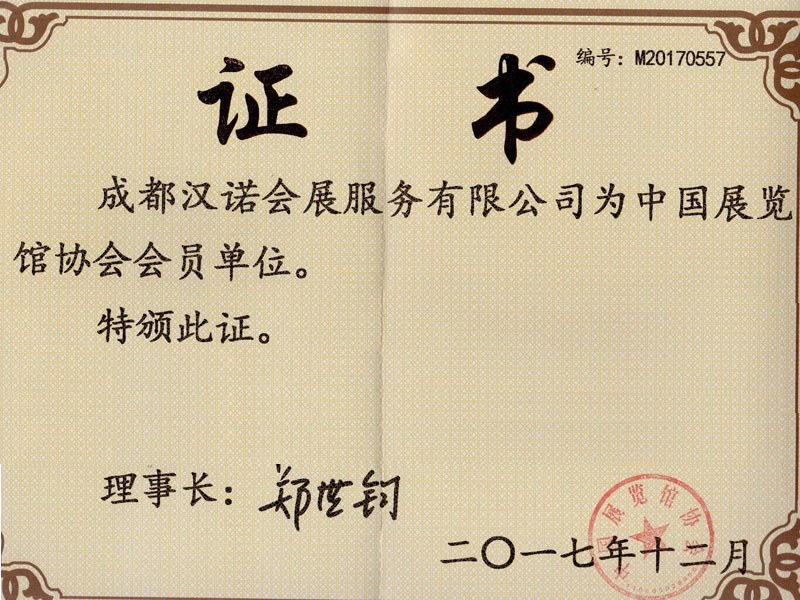 编号：M20170557
证 书
成都汉诺会展服务有限公司为中国展览
馆协会会员单位。
特颁此证。
理事长：郑世钧
二〇一七年十二月
中国展览馆协会